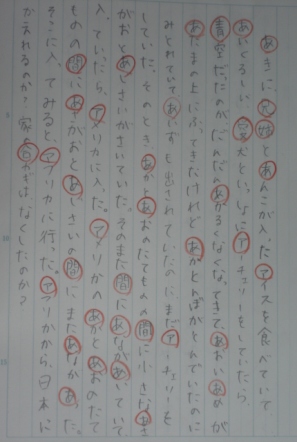 あきに、兄妹とあんこが入ったアイスを食べていて
あいくるしい、室犬といっしょにアーチェリーをしていたら、
青空だったのがだんだんあかるくなくなってきて、あおいあめが
あたまの上にふってきたけれどあかとんぼがとんでいたのに
みとれていてあいずも出されていたのにまだアーチェリーを
していた。そのとき、あかとあおのたてものの間に小さなあき
がおとあじさいがさいていた。そのまた間にあながあいていて
入っていったら、アメリカに入った。アメリカのあかとあおのたて
ものの間に、あさがおとあじさいの間にまたあながあった。
そこに入ってみると、アフリカに行った。アフリカから、日本に
かえれるのか？家の合かぎはなくしたのか？